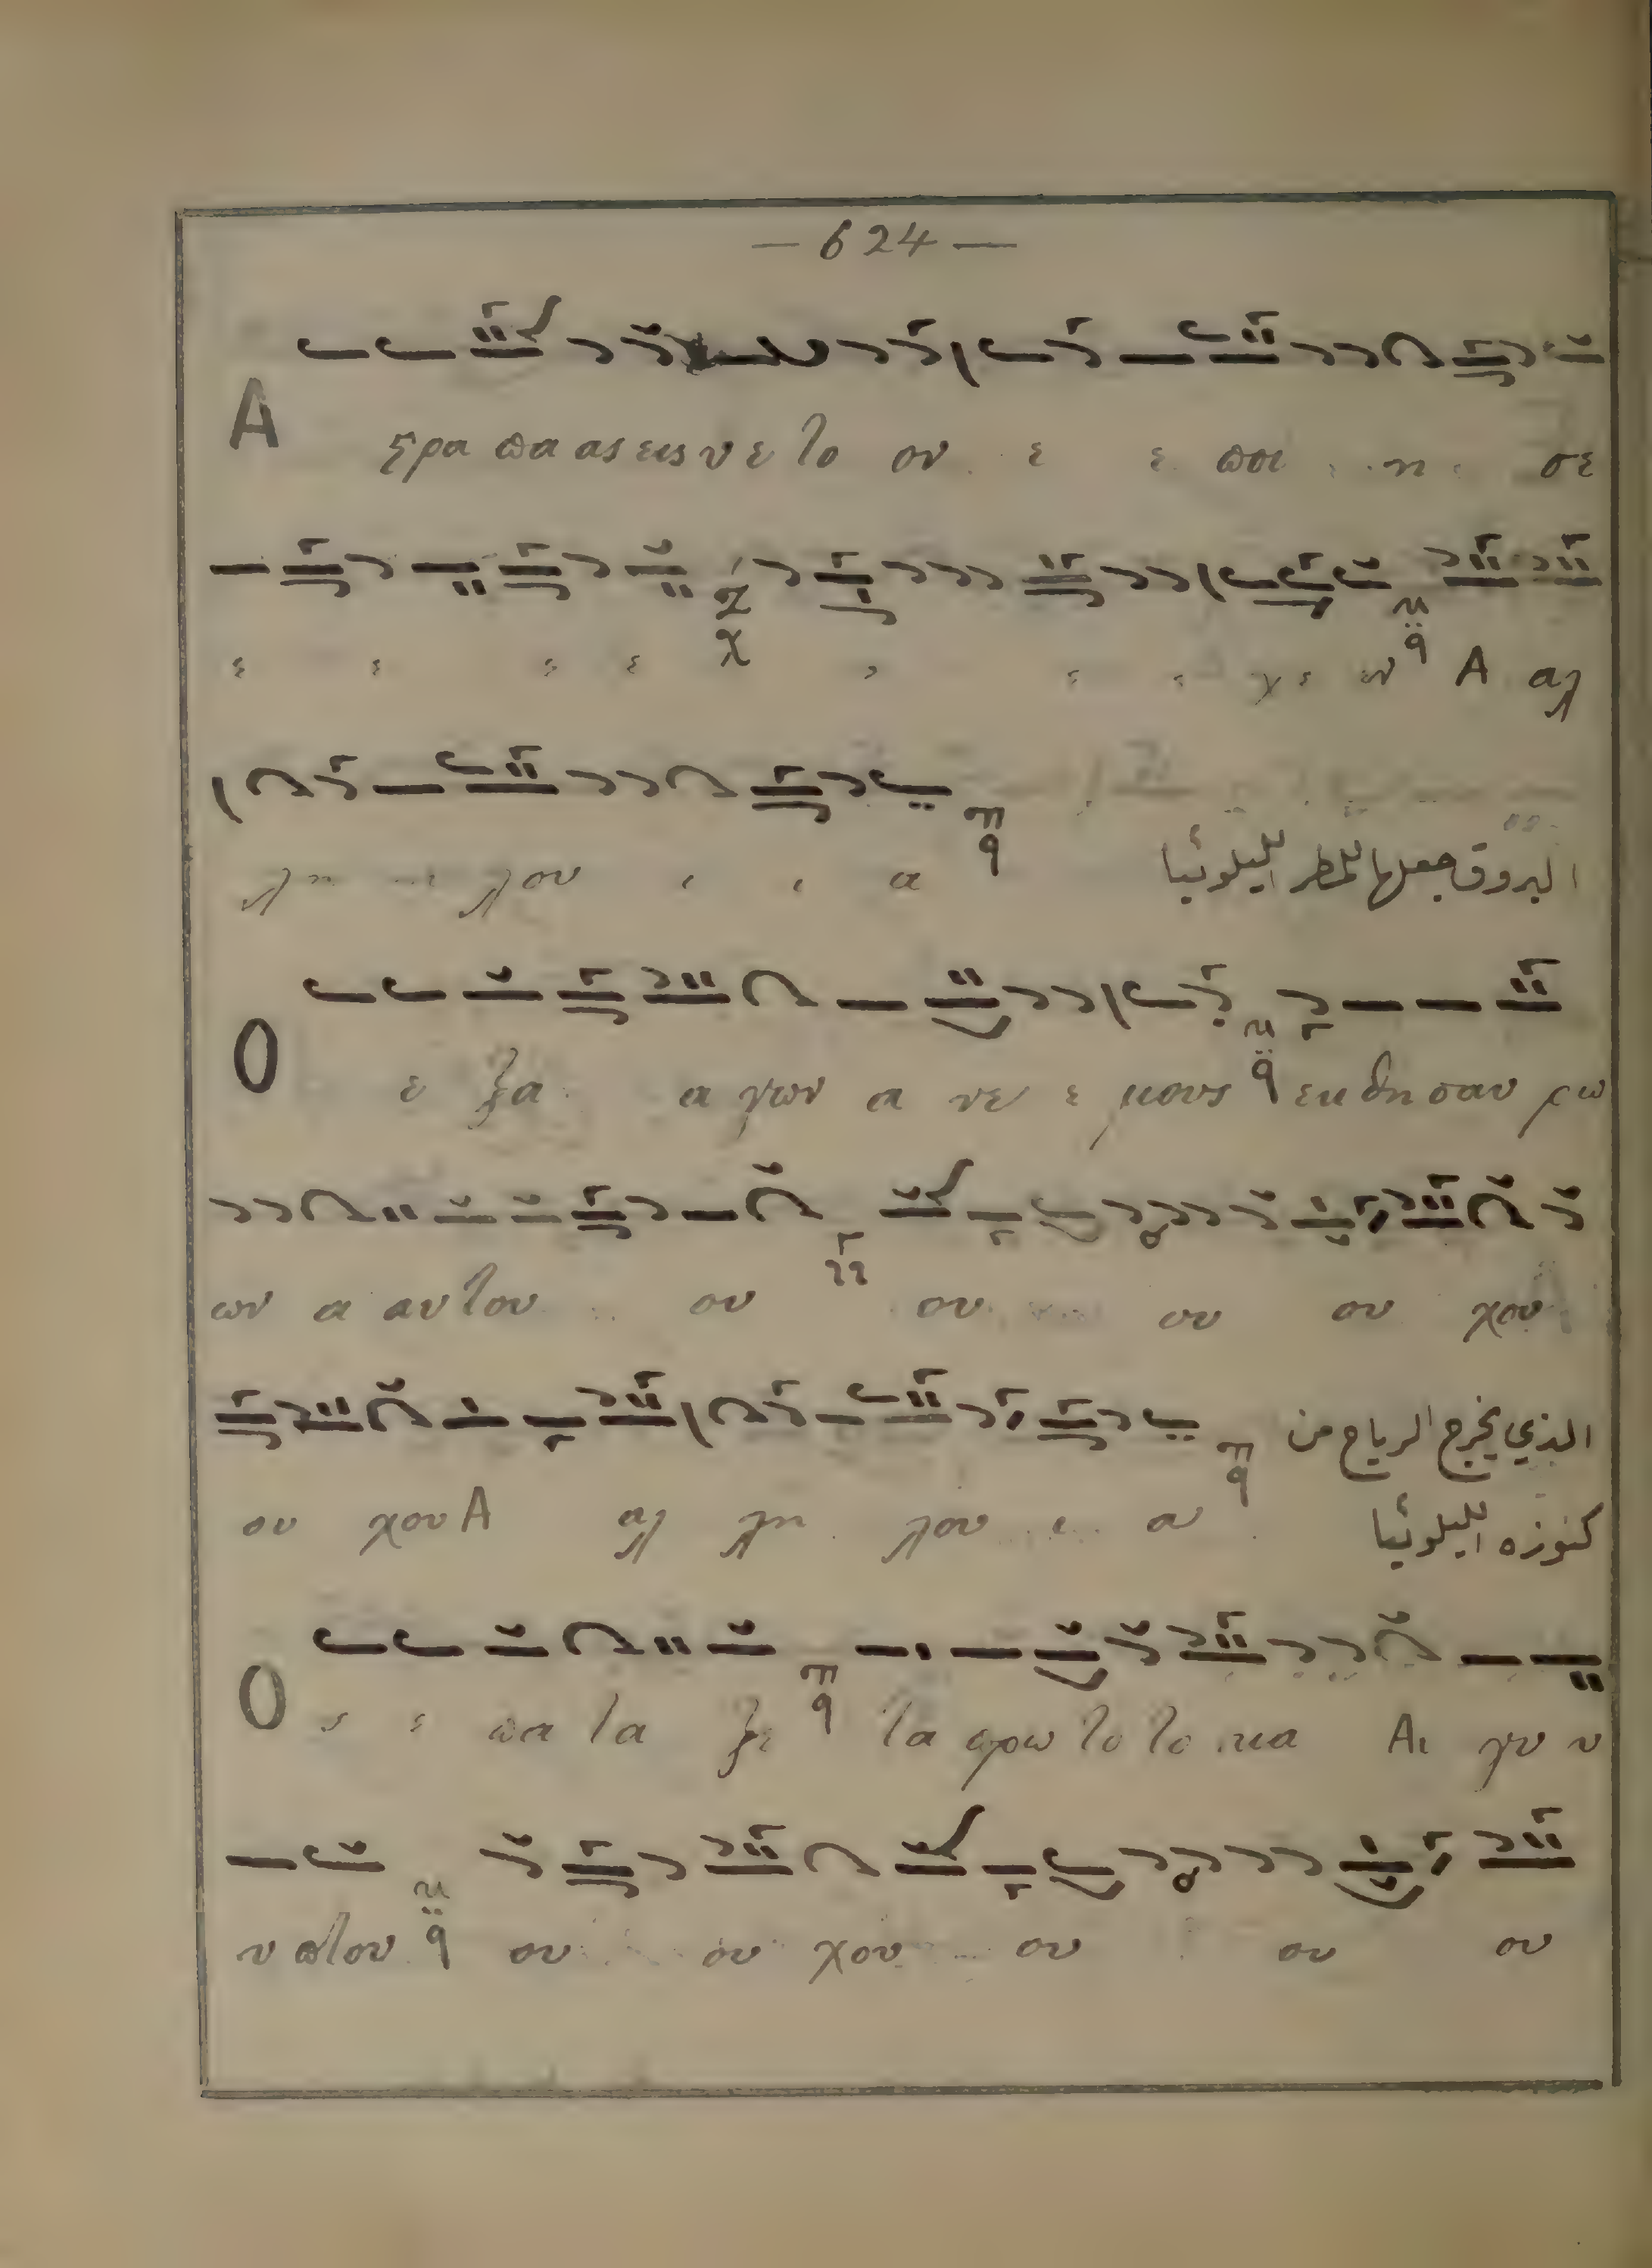 — 624 —
Α ϛρα πα ας εις υ ε το ον ε ε ποι η σε
ε ε ε ε χ ε ε χ ε ον Α αλ
λη λου ι ι α البروق جعلها للمطر الليلوئيا
Ο ε ξα α γων α νε ε μους εκ θη σαυ ρω
ων α αυ του ου ου ου ου χου
ου χου Α αλ λη λου ι α الذي يخرج الرياح من
كنوزه الليلوئيا
Ο ς ε πα τα ξε τα πρω το το κα Αι γυ υ
υ πτου ου ου χου ου ου ου